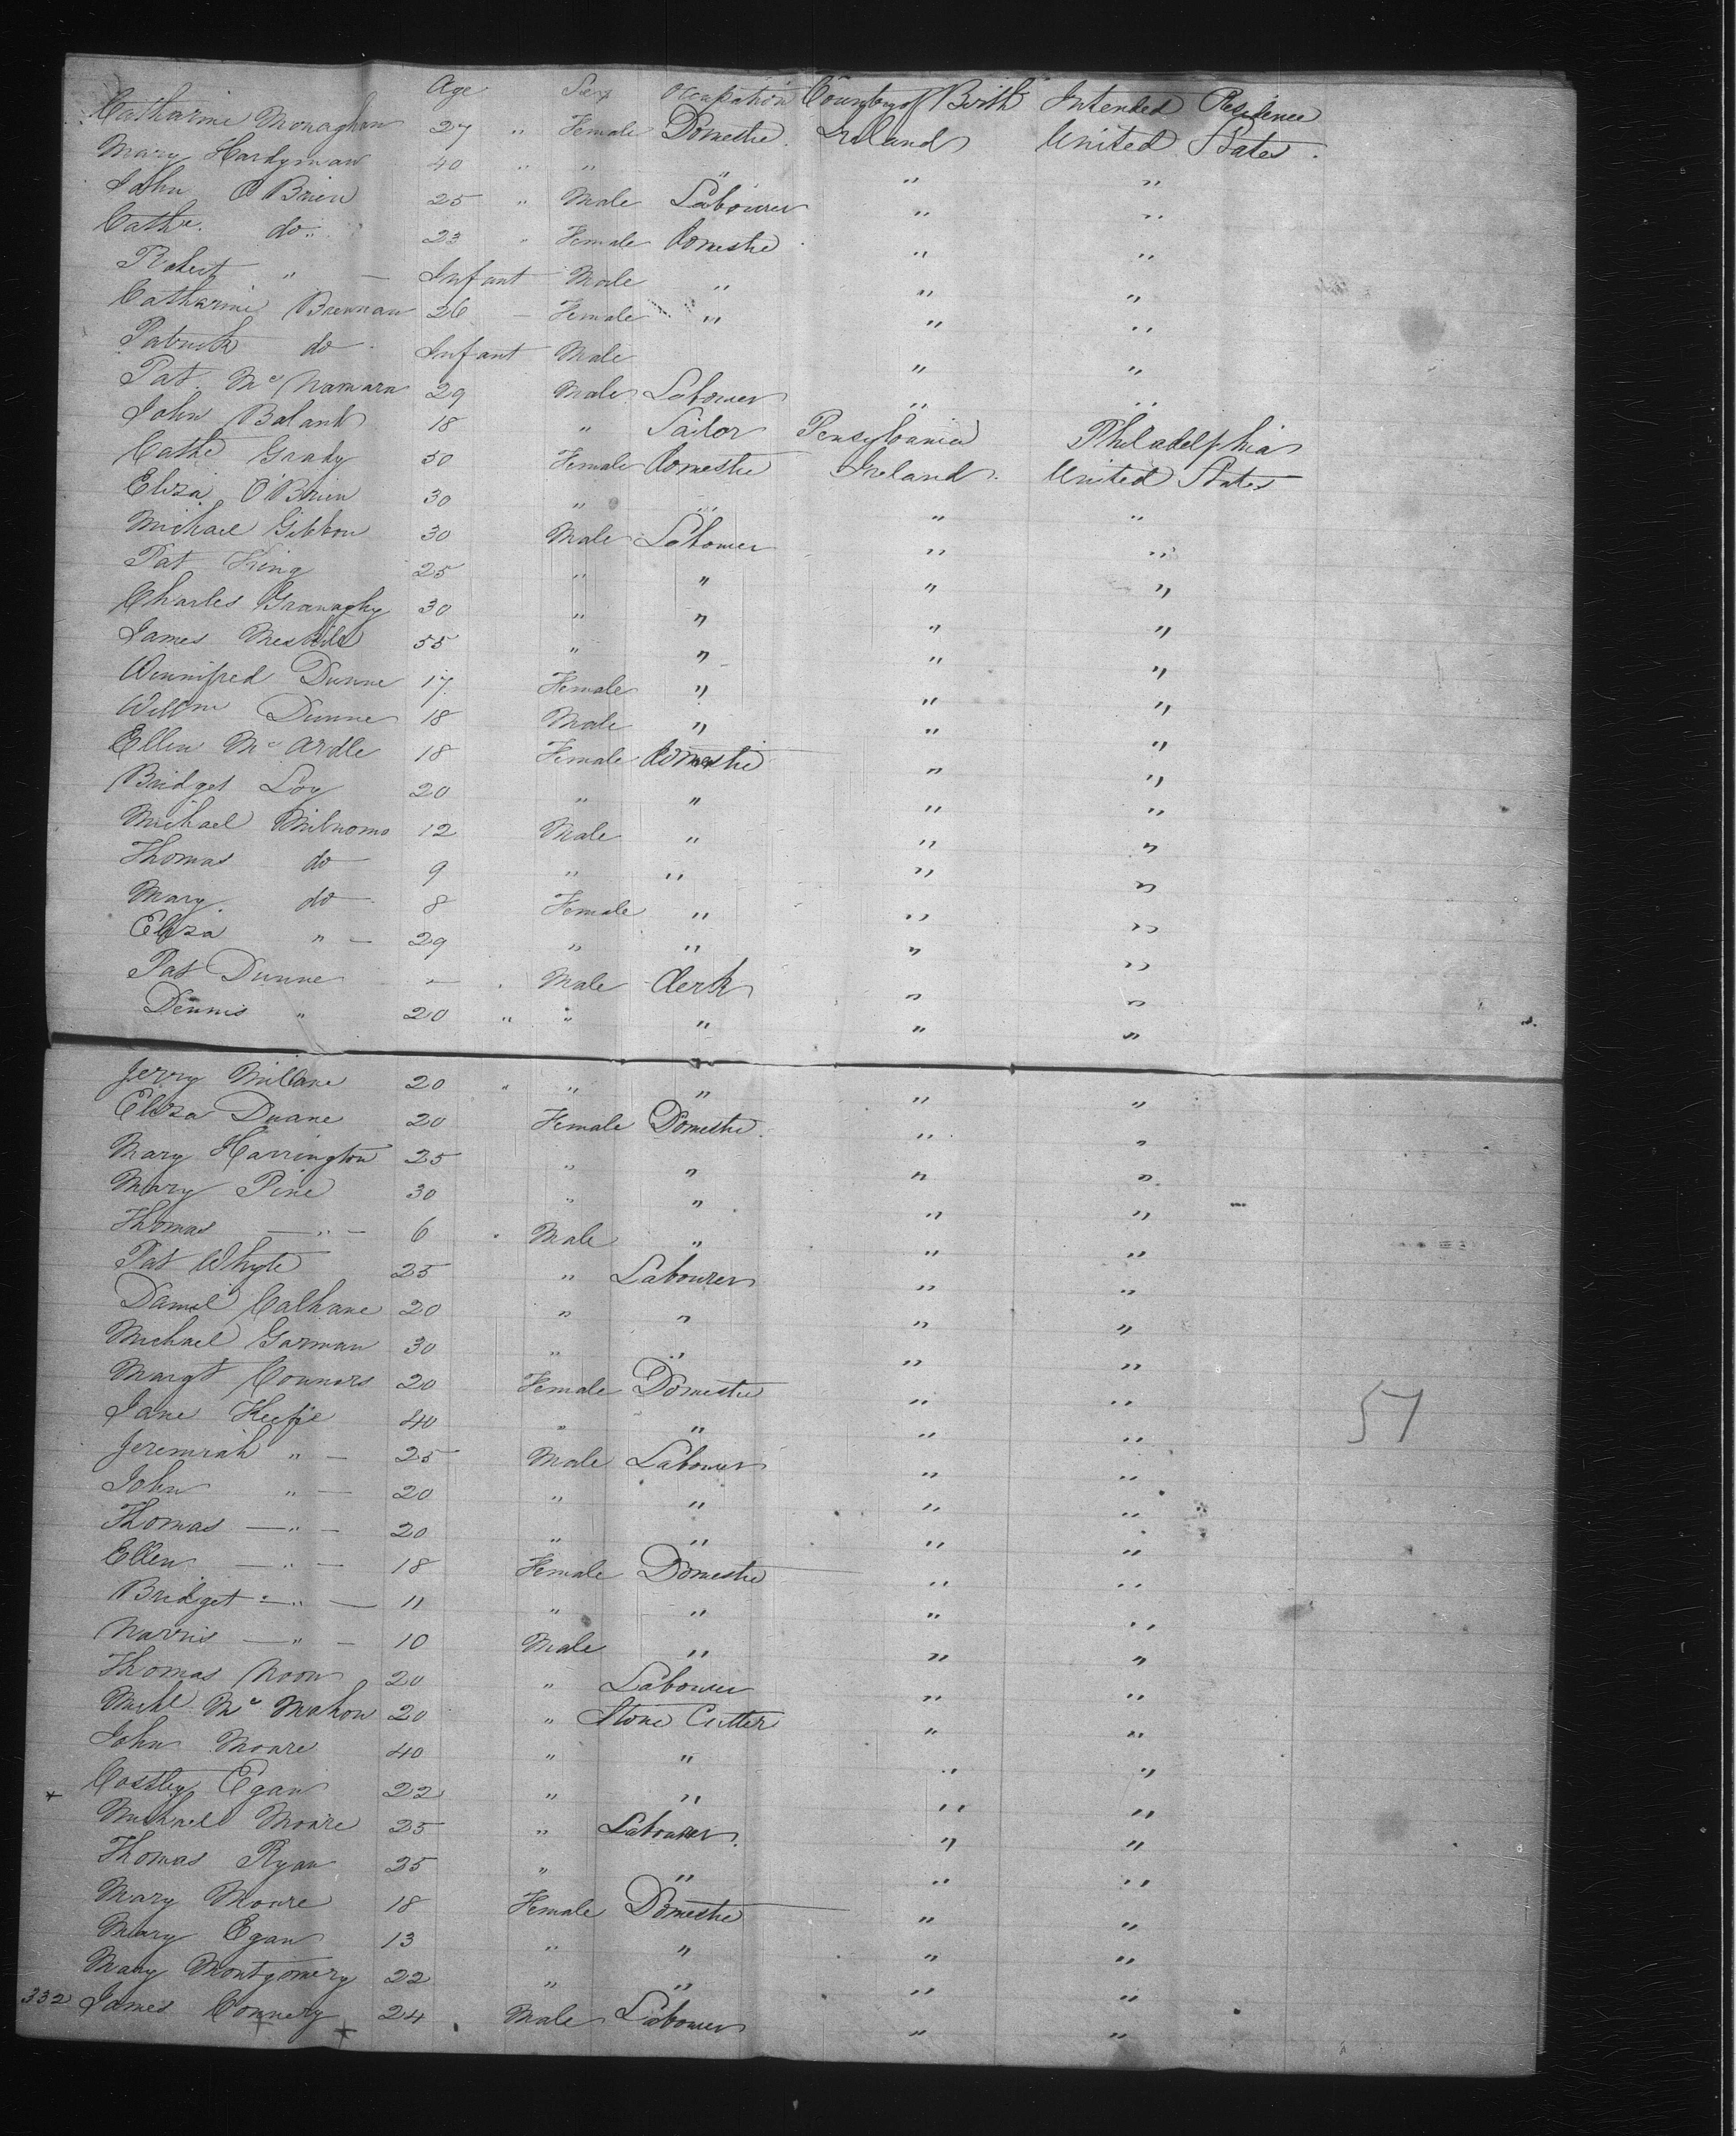 Age Sex Occupation Country of Birth Intended Residence
Catharine Monaghan 27 " Female Domestic Ireland United States
Mary Hardyman 40 " " " " "
John O'Brien 25 " Male Labourer " "
Cathe. do " 23 " Female Domestic " "
Robert " — Infant Male " " "
Catharine Brennan 26 — Female " " "
Patrick do Infant Male " "
Pat. Mc Namara 29 Male Labourer " "
John Balank 18 " Sailor Pensylvania Philadelphia
Cathe Grady 50 Female Domestic Ireland United States
Eliza O'Brien 30 " " " "
Michael Gibbon 30 Male Labourer " "
Pat King 25 " " " "
Charles 30 " " " "
James 55 " " " "
Winnifred Dunne 17 Female " " "
Willm Dunne 18 Male " " "
Ellen Mc Ardle 18 Female Domestic " "
Bridget Loy 20 " " " "
Michael 12 Male " " "
Thomas do 9 " " " "
Mary do 8 Female " " "
Eliza " — 29 " " " "
Pat Dunne — Male Clerk " "
Dennis " 20 " " " " "
Jerry Millane 20 " " " " "
Eliza Duane 20 Female Domestic " "
Mary Harrington 25 " " " "
Mary Pine 30 " " " "
Thomas — " — 6 Male " " "
Pat Whyte 25 " Labourer " "
Daniel Calhane 20 " " " "
Michael Garman 30 " " " "
Margt Connors 20 Female Domestic " "
Jane Keefe 40 " " " "
Jeremiah " — 25 Male Labourer " "
57
John " — 20 " " " "
Thomas — " — 20 " " " "
Ellen — " — 18 Female Domestic " "
Bridget — " — 11 " " " "
Norris — " — 10 Male " " "
Thomas Noon 20 " Labourer " "
Michl Mc Mahon 20 " Stone Cutter " "
John Moare 40 " " " "
Costley Egan 22 " " " "
Michael Moare 25 " Labourer " "
Thomas Ryan 25 " " " "
Mary Moare 18 Female Domestic " "
Mary Egan 13 " " " "
Mary Montgomery 22 " " " "
332 James Connery 24 Male Labourer " "